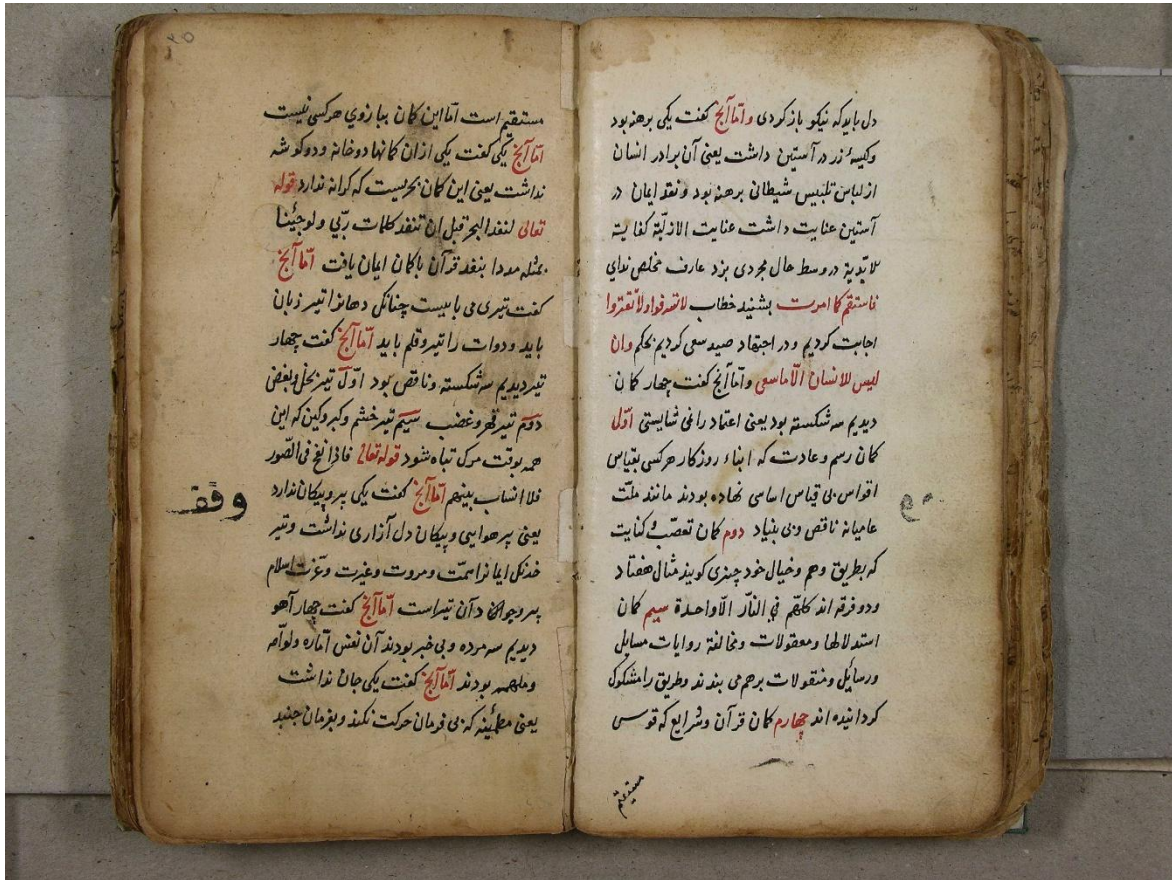 دل بايد كه نيكو باز كردى و امّا آنچ كفت يكى برهنه بود
وكيسهٔ زر در آستين داشت يعنى آن برادر انسان
از لباس تلبيس شيطانى برهنه بود ونقد ايمان در
آستين عنايت داشت عنايت الازليّة كفاية
للابدية در وسط حال مجردى بزد عارف مخلص نداى
فاستقم كما امرت بشنيد خطاب لاتفرقوا
اجابت كرديم و در اجتهاد صيد سعى كرديم بحكم وان
ليس للانسان الّا ماسعى و امّا آنج كفت چهار كمان
ديديم سه شكسته بود يعنى اعتماد را نمى شايستى اوّل
كمان رسم و عادت كه ابناء روزكار هر كسى بقياس
اقواس بى قياس اساسى نهاده بودند مانند ملّت
عاميانه ناقص وبى بنياد دوم كمان تعصّب
كه بطريق وهم وخيال خود چيزى كويند مثال هفتاد
ودو فرقه اند كلهّم فى النّار الّا واحدة سيم كمان
استدلالها ومعقولات ومخالفة روايات مسايل
ورسايل ومنقولات برهم مى بندند وطريق را مشكوك
كردانيده اند چهارم كمان قرآن وشرايع كه قوسى
مستقيم
٢٥
مستقيم است امّا اين كمان ببازوي هر كسى نيست
امّا آنج يكّى كفت يكى از ان كمانها دو خانه و دو كوشه
نداشت يعنى اين كمان بحريست كه كرانه ندارد قوله
تعالى لنفد البحر قبل ان تنفد كلمات ربّي ولو جئنا
بمثله مددا بنقد قرآن با كمان ايمان يافت امّا آنج
كفت تيرى مى بايست چنانك دهان را تير زبان
بايد و دوات را تير و قلم بايد امّا آنج كفت چهار
تير ديديم سه شكسته وناقص بود اوّل تير بخل وبغض
دوم تير قهر و غضب سيم تير خشم وكبر وكين كه اين
همه بوقت مرك تباه شود قوله تعالى فاذا نفخ فى الصّور
فلا انساب بينهم امّا آنج كفت يكى پر و پيكان ندارد
يعنى پر هوايى و پيكان دل آزارى نداشت وتير
خدنك ايمان را همّت ومروت وغيرت وعزّت اسلام
آن تير است امّا آنج كفت چهار آهو
ديديم سه مرده و بى خبر بودند آن نفس امّاره ولوّامه
وملهمه بودند امّا آنج كفت يكى جان نداشت
يعنى مطمئينه كه بى فرمان حركت نكند و بفرمان جنبد
وقف